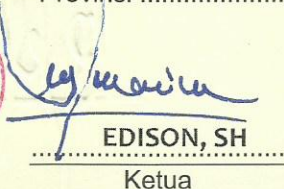 EDISON, SH
Ketua